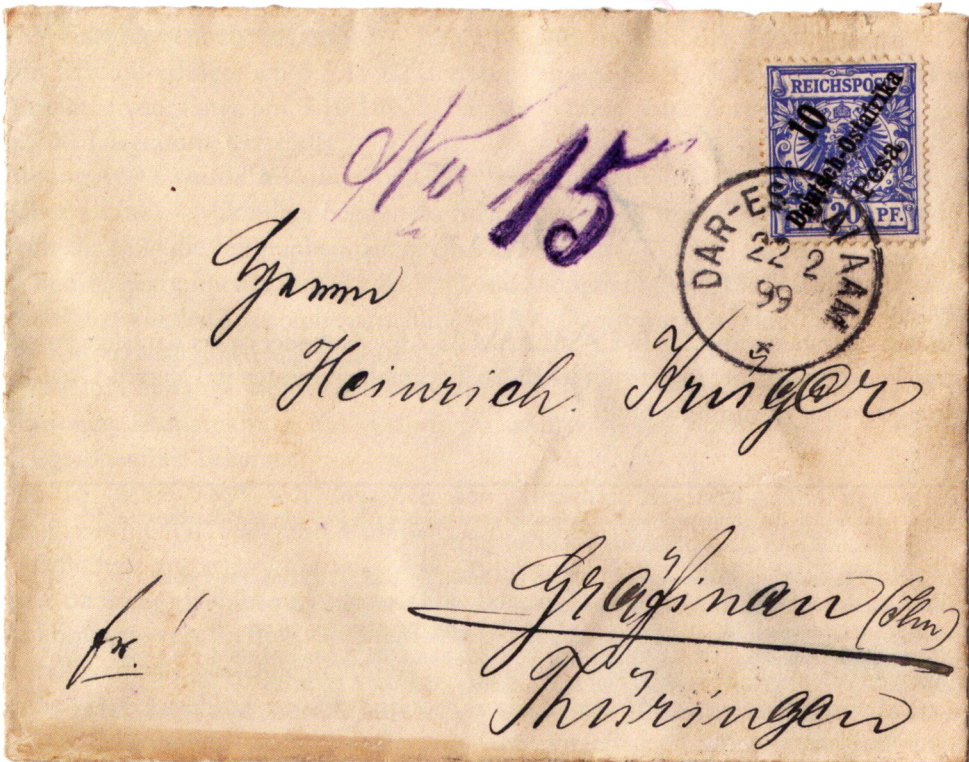 REICHSPOST
10
Deutsch-Ostafrika
Pesa
20 PF.
DAR-ES-SALAAM
22 2
99
No 15
Herrn
Heinrich. Krüger
Gräfinau (Ilm)
Thüringen
fr.!